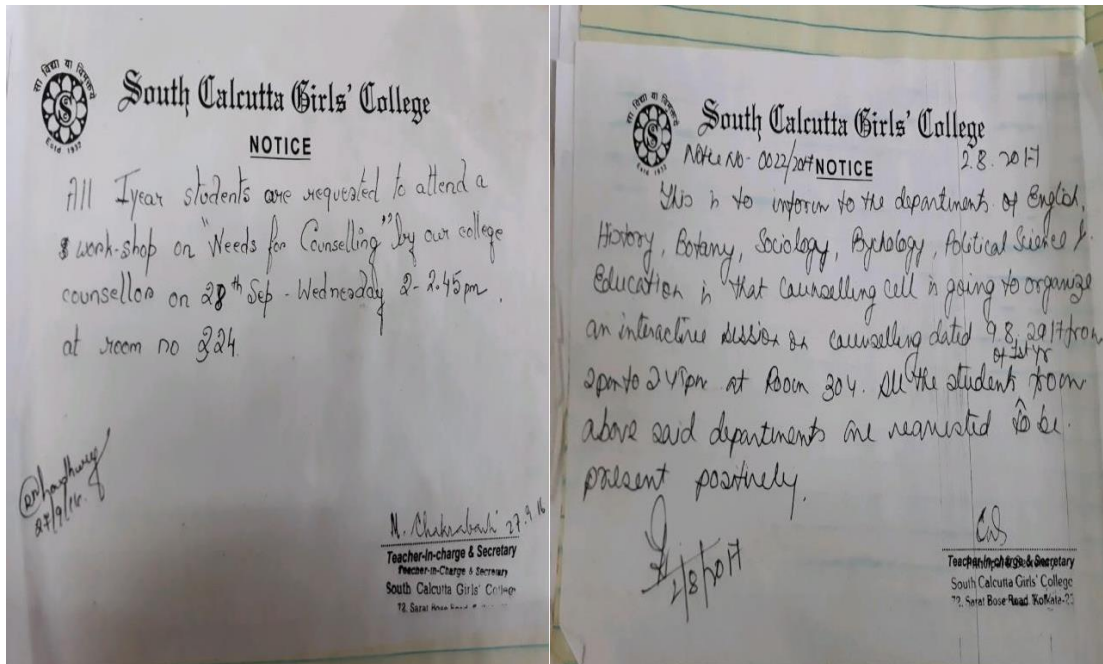 सा विद्या या विमुक्तये
Estd 1932
South Calcutta Girls' College
NOTICE
All I year students are requested to attend a
work-shop on "Needs for Counselling" by our college
counsellor on 28th Sep - Wednesday 2-2.45pm,
at room no 224.
27/9/16.
N. Chakrabarti 27.9.16
Teacher-In-charge & Secretary
Teacher-in-Charge & Secretary
South Calcutta Girls' College
72, Sarat Bose Road
सा विद्या या विमुक्तये
Estd 1932
South Calcutta Girls' College
Notice No- 0022/2017 NOTICE 2.8.2017
This is to inform to the departments of English,
History, Botany, Sociology, Pychology, Political Science &
Education is that Counselling cell is going to organize
an interactive session on counselling dated 9.8.2017 from
of 1st yr
2pm to 245pm at Room 304. All the students from
above said departments are requested to be
present positively.
2/8/2017
Teacher-in-charge & Secretary
South Calcutta Girls' College
72, Sarat Bose Road, Kolkata-25